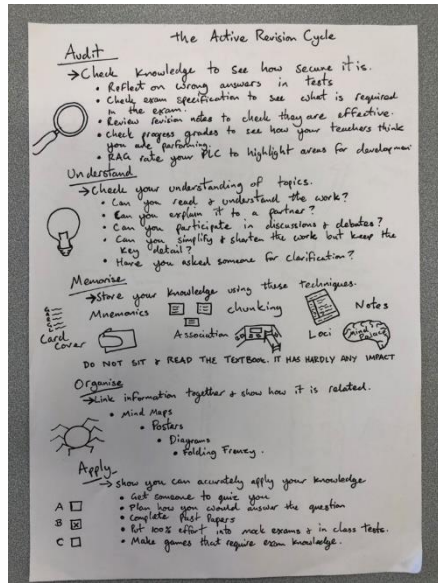 the Active Revision Cycle
Audit
→ Check Knowledge to see how secure it is.
• Reflect on wrong answers in tests
• Check exam specification to see what is required
in the exam.
• Review revision notes to check they are effective.
• Check progress grades to see how your teachers think
you are performing.
• RAG rate your PLC to highlight areas for development
Understand
→ Check your understanding of topics.
• Can you read & understand the work?
• Can you explain it to a partner?
• Can you participate in discussions & debates?
• Can you simplify & shorten the work but keep the
key detail?
• Have you asked someone for clarification?
Memorise
→ Store your knowledge using these techniques.
Mnemonics chunking Notes
Card Cover Association Loci Mind Palace
DO NOT SIT & READ THE TEXTBOOK. IT HAS HARDLY ANY IMPACT
Organise
→ Link information together & show how it is related.
• Mind Maps
• Posters
• Diagrams
• Folding Frenzy.
Apply
→ show you can accurately apply your knowledge
• Get someone to quiz you
• Plan how you would answer the question
A
• Complete Past Papers
B
• Put 100% effort into mock exams & in class tests.
C
• Make games that require exam knowledge.